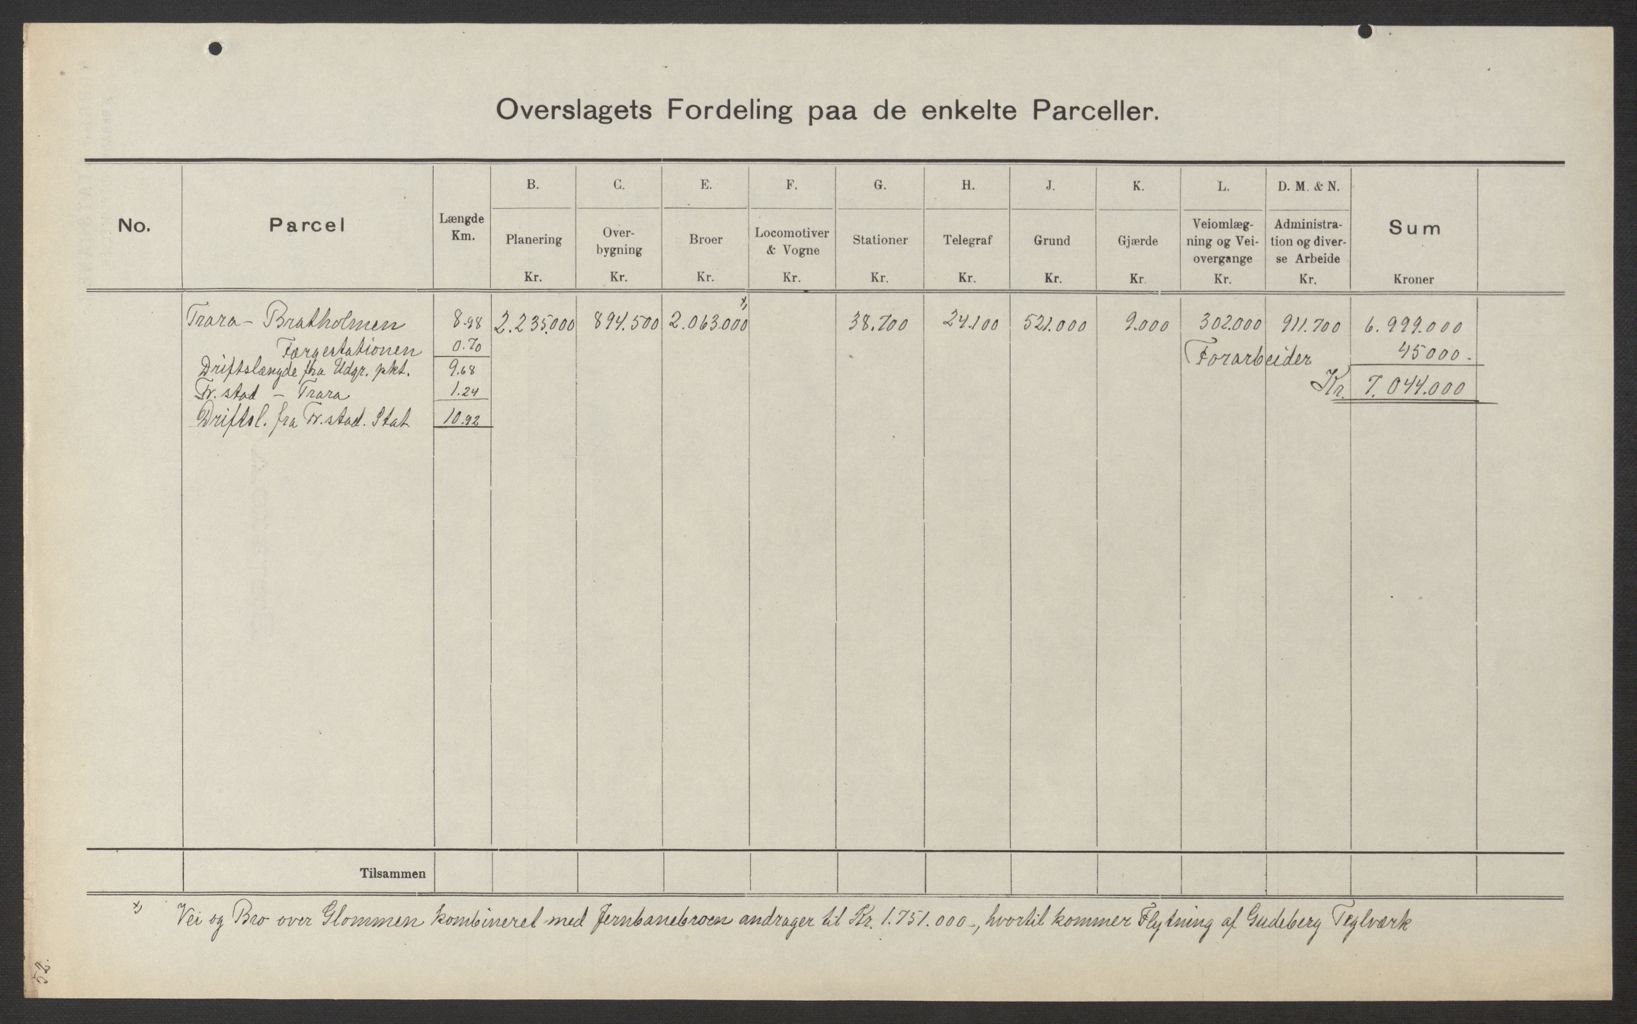 Overslagets Fordeling paa de enkelte Parceller.
No. Parcel Længde Km. B. Planering Kr. C. Over-bygning Kr. E. Broer Kr. F. Locomotiver & Vogne Kr. G. Stationer Kr. H. Telegraf Kr. J. Grund Kr. K. Gjærde Kr. L. Veiomlæg-ning og Vei-overgange Kr. D. M. & N. Administra-tion og diver-se Arbeide Kr. Sum Kroner
Trara - Bratholmen 8.98 2.235.000 894.500 2.063.000 x) 38.700 24.100 521.000 9.000 302.000 911.700 6.999.000
Færgestationen 0.70 Forarbeider 45000.-
Driftslængde fra Udgr. pkt. 9.68 Kr. 7.044.000
Fr. stad - Trara 1.24
Driftsl. fra Fr. stad. Stat 10.92
Tilsammen
x) Vei og Bro over Glommen kombineret med Jernbanebroen andrager til Kr. 1.751.000.-, hvortil kommer Flytning af Gudeberg Teglværk
52.